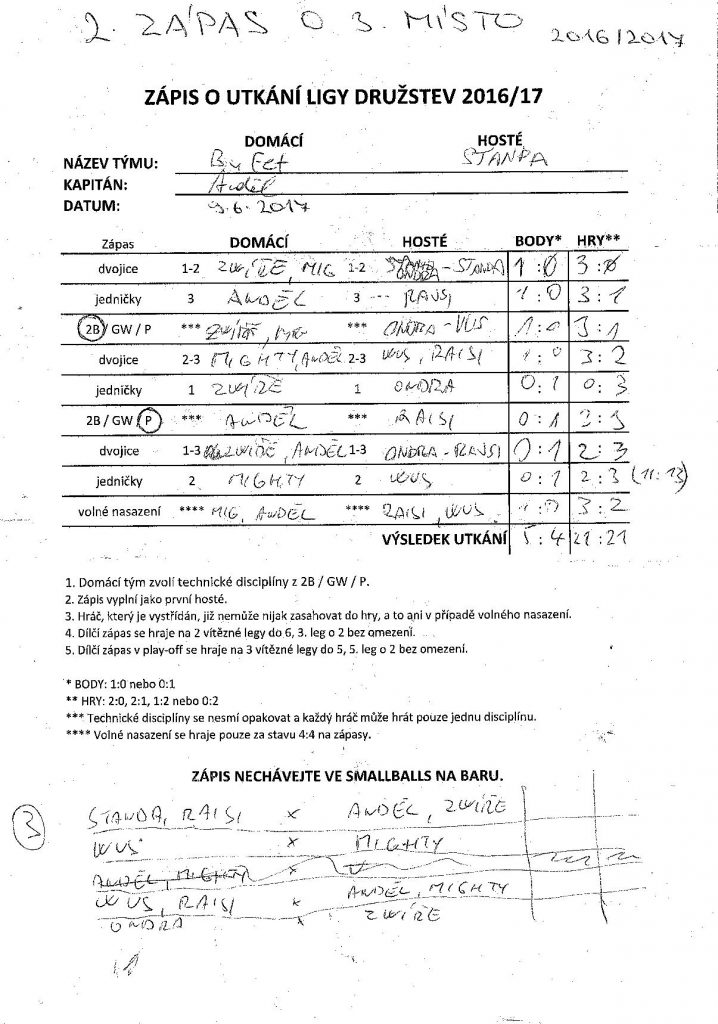 2. ZÁPAS O 3. MÍSTO 2016/2017
ZÁPIS O UTKÁNÍ LIGY DRUŽSTEV 2016/17
DOMÁCÍ HOSTÉ
NÁZEV TÝMU: Buffet STANDA
KAPITÁN: Anděl
DATUM: 9.6.2017
Zápas DOMÁCÍ HOSTÉ BODY* HRY**
dvojice 1-2 ZVÍŘE, MIG 1-2 ONDRA - STANDA 1:0 3:0
jedničky 3 ANDĚL 3 --- RAISI 1:0 3:1
2B / GW / P *** ZVÍŘE, MIG *** ONDRA-WUS 1:0 3:1
dvojice 2-3 MIGHTY, ANDĚL 2-3 WUS, RAISI 1:0 3:2
jedničky 1 ZVÍŘE 1 ONDRA 0:1 0:3
2B / GW / P *** ANDĚL *** RAISI 0:1 2:3
dvojice 1-3 ZVÍŘE, ANDĚL 1-3 ONDRA - RAISI 0:1 2:3
jedničky 2 MIGHTY 2 WUS 0:1 2:3 (11:13)
volné nasazení **** MIG, ANDĚL **** RAISI, WUS 1:0 3:2
VÝSLEDEK UTKÁNÍ 5:4 21:21
1. Domácí tým zvolí technické disciplíny z 2B / GW / P.
2. Zápis vyplní jako první hosté.
3. Hráč, který je vystřídán, již nemůže nijak zasahovat do hry, a to ani v případě volného nasazení.
4. Dílčí zápas se hraje na 2 vítězné legy do 6, 3. leg o 2 bez omezení.
5. Dílčí zápas v play-off se hraje na 3 vítězné legy do 5, 5. leg o 2 bez omezení.
* BODY: 1:0 nebo 0:1
** HRY: 2:0, 2:1, 1:2 nebo 0:2
*** Technické disciplíny se nesmí opakovat a každý hráč může hrát pouze jednu disciplínu.
**** Volné nasazení se hraje pouze za stavu 4:4 na zápasy.
ZÁPIS NECHÁVEJTE VE SMALLBALLS NA BARU.
3 STANDA, RAISI x ANDĚL, ZVÍŘE
WUS x MIGHTY
ANDĚL, MIGHTY x
WUS, RAISI x ANDĚL, MIGHTY
ONDRA x ZVÍŘE